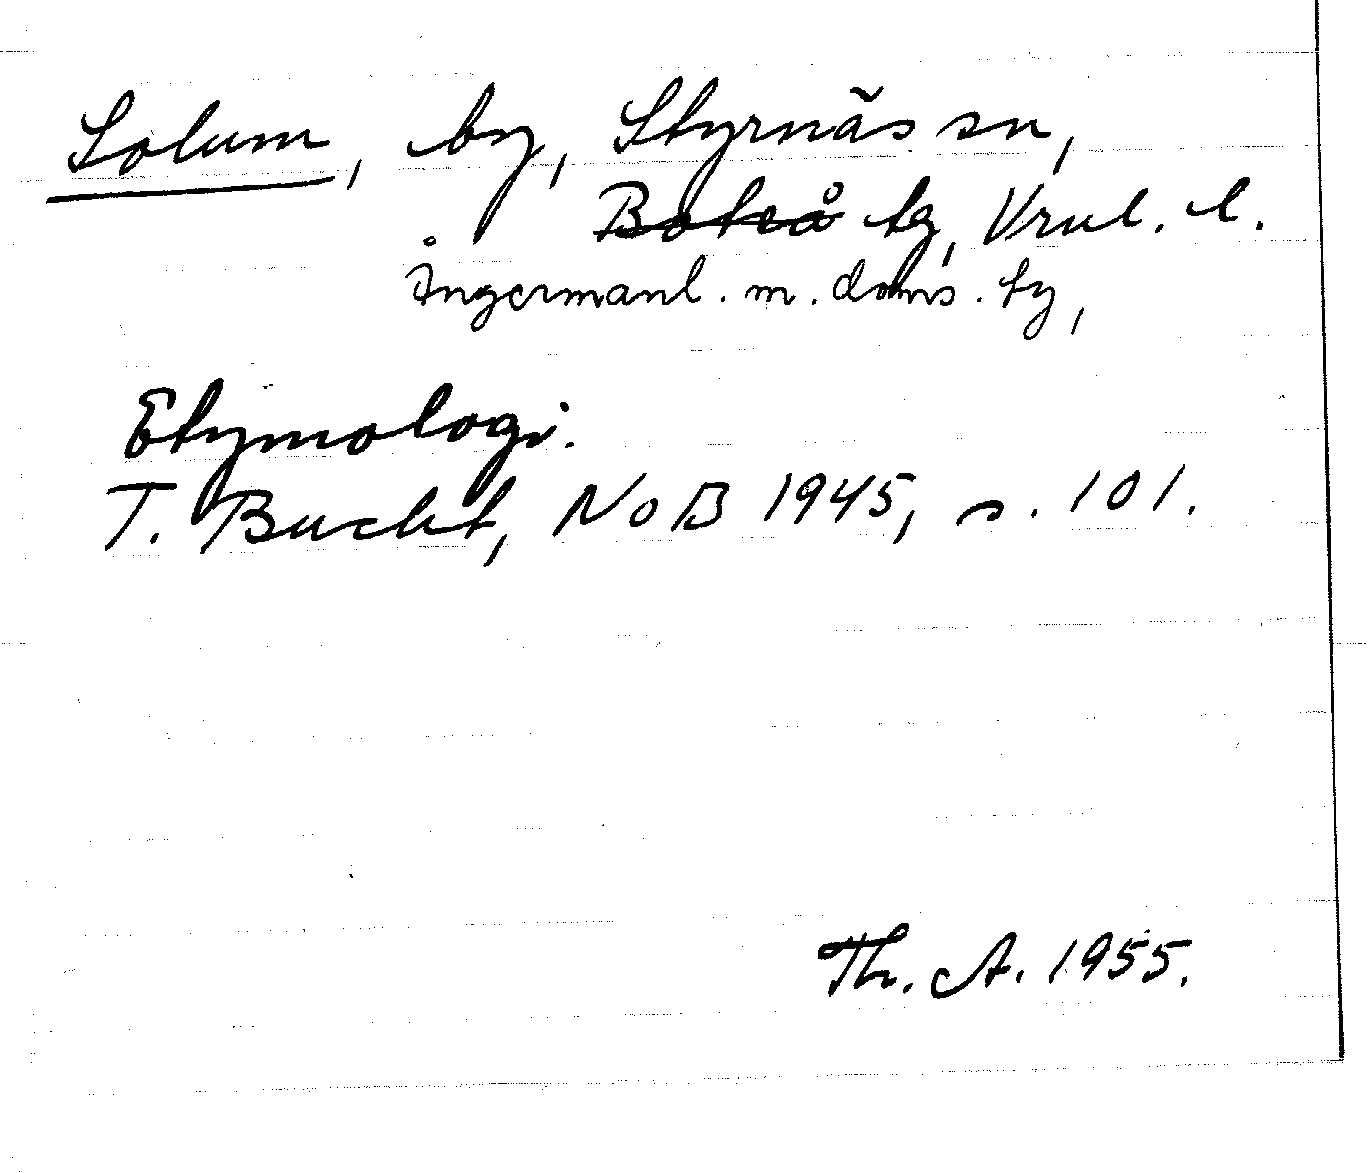 Solum, by, Styrnäs sn,
Boteå tg, Vrnl. l.
Ångermanl. m. doms. tg,
Etymologi.
T. Bucht, NoB 1945, s. 101.
Th. A. 1955.